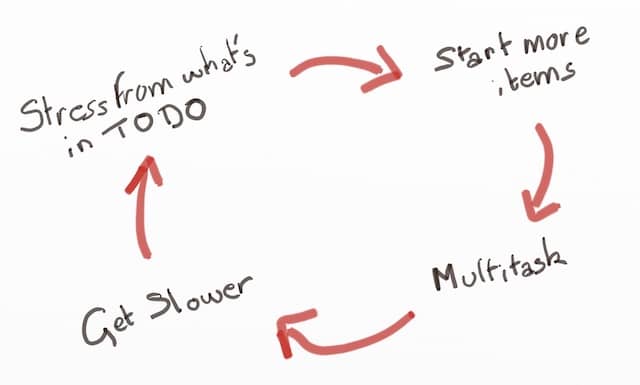 Stress from what's
in TODO
Start more
items
Multitask
Get Slower